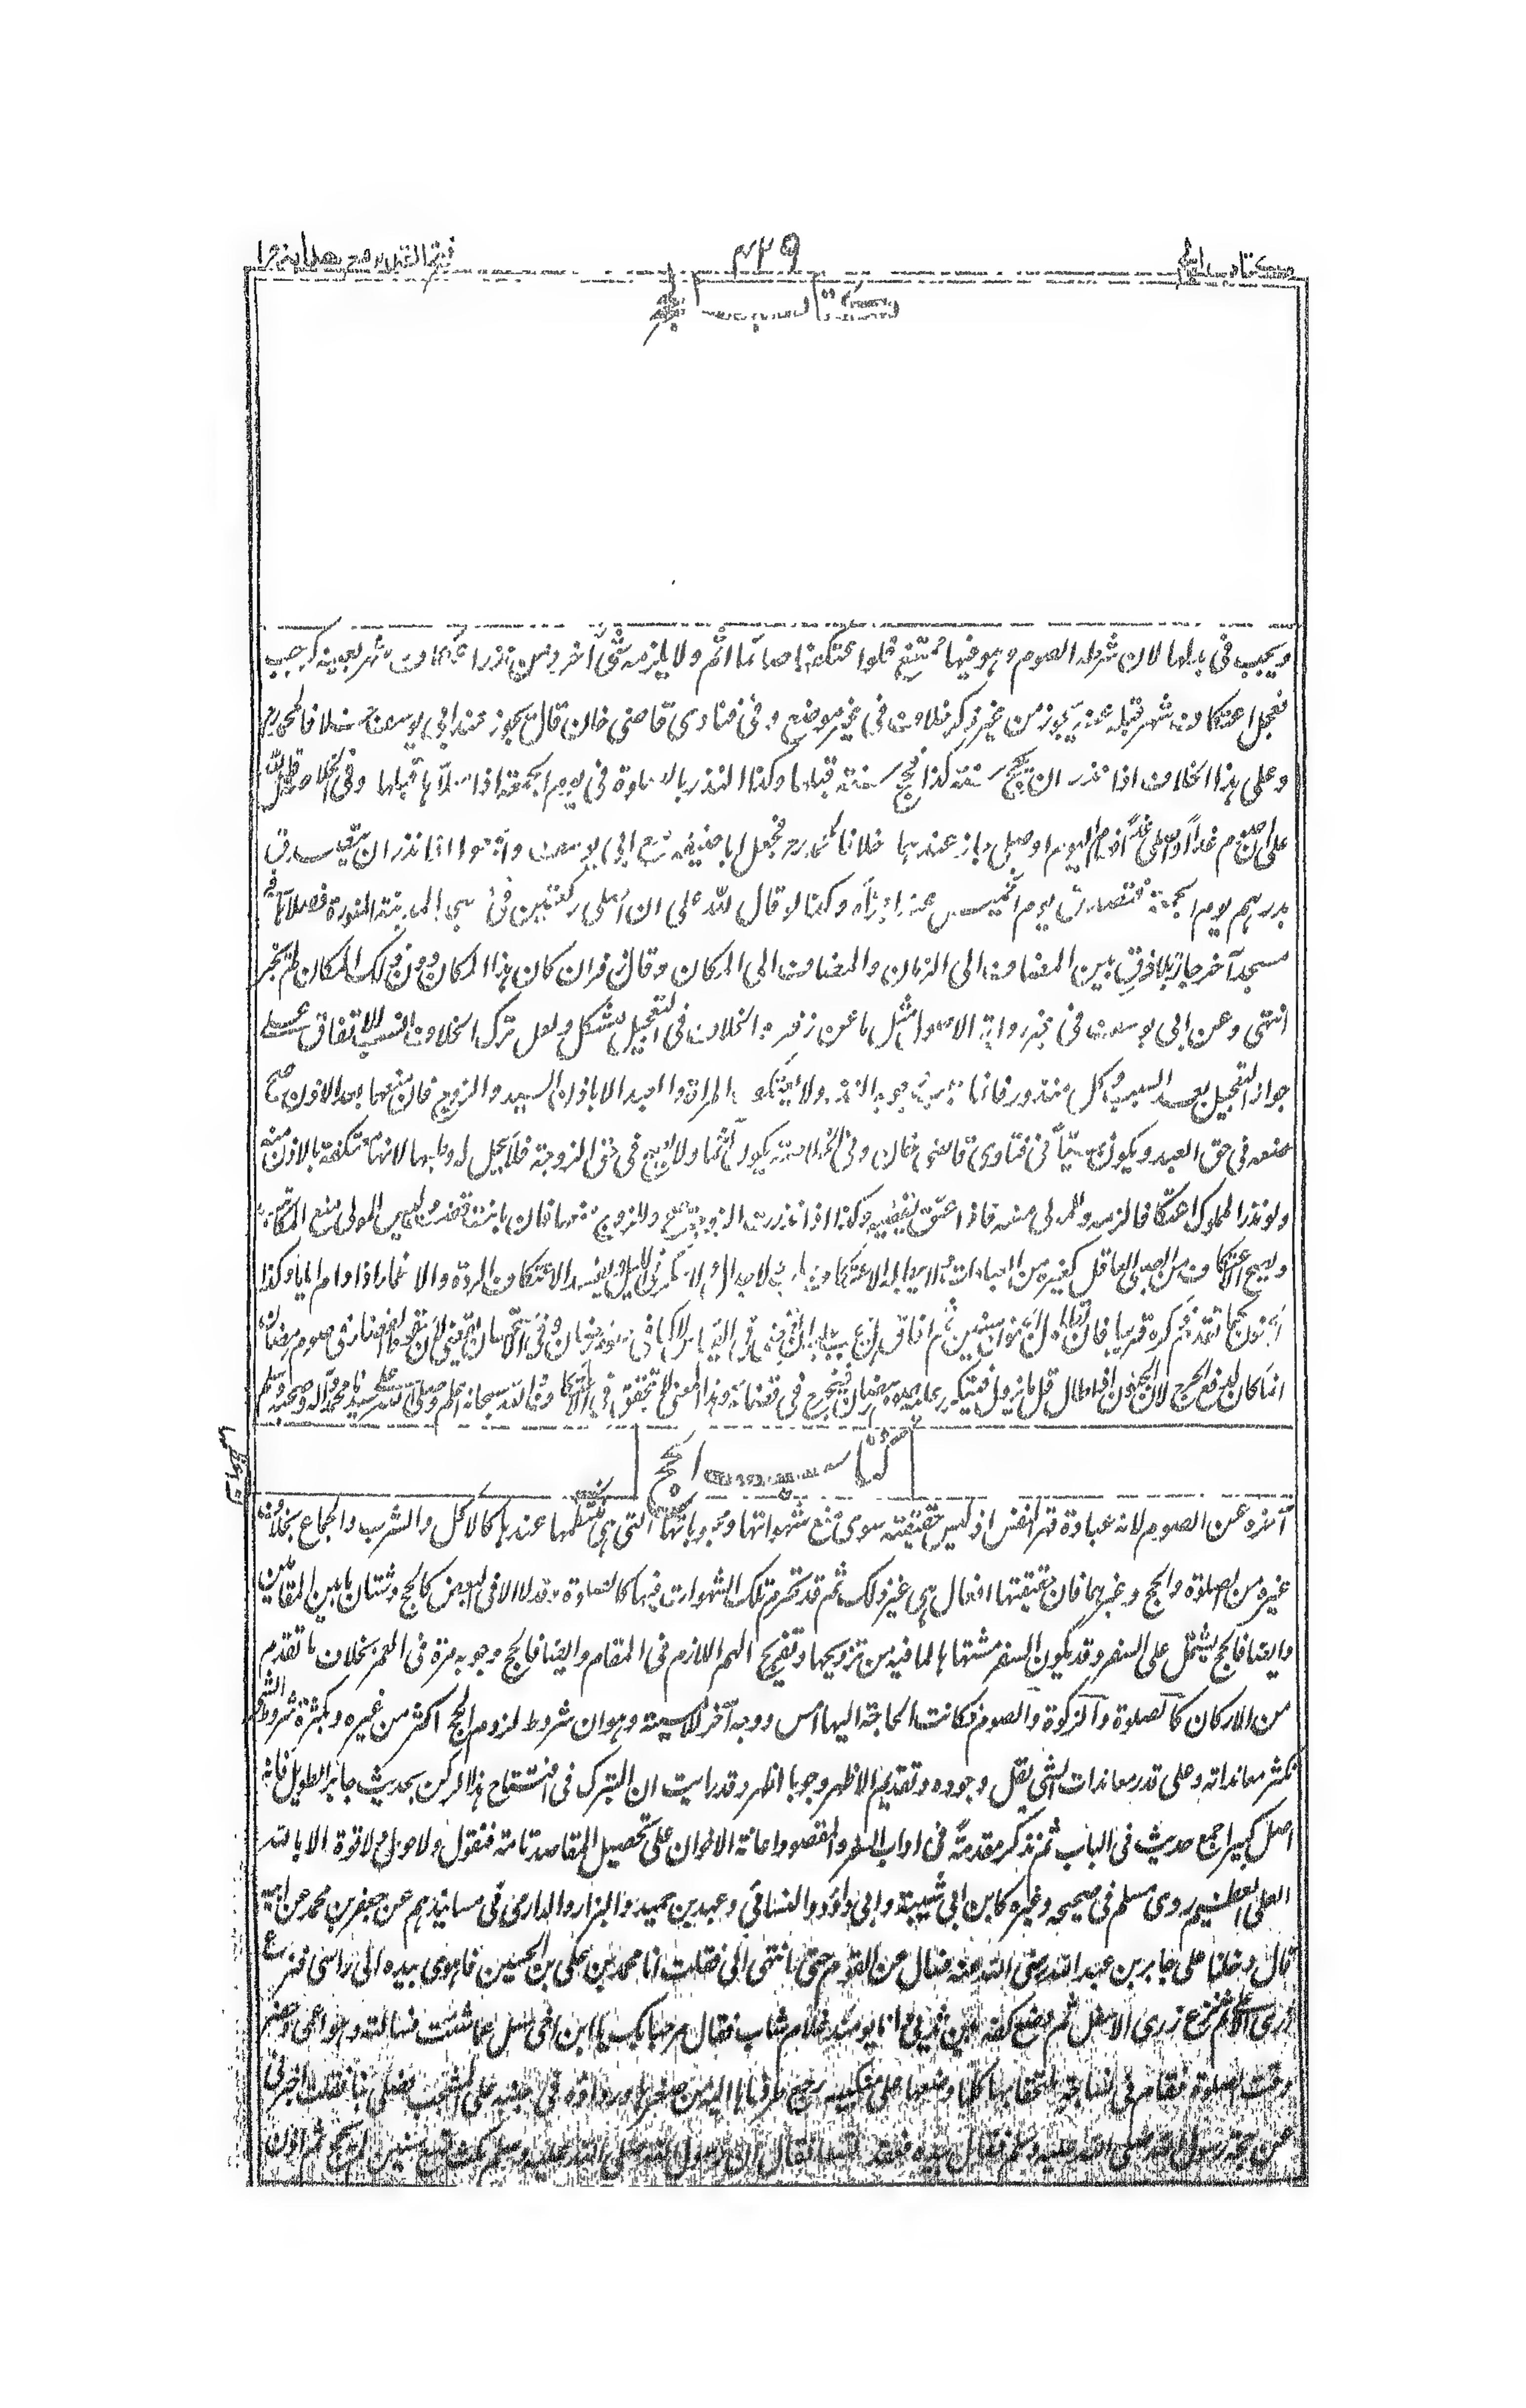 كتاب الحج
٤٢٩
فتح القدير مع هداية ج ١
كتاب الحج
ويجب في بدلها لان شرطه الصوم وهو فيها ممتنع فلوا عتكفها صائما اثم ولا يلزمه شئ آخر ومن نذر اعتكاف شهر بعينه كرجب
فعجل اعتكاف شهر قبله عنه يجوز من غير ذكر خلاف في غير موضع وفي فتاوى قاضي خان قال يجوز عند ابي يوسف خلافا لمحمد رح
وعلى هذا الخلاف اذا نذر ان يحج سنة كذا فحج سنة قبلها وكذا النذر بالصلوة في يوم الجمعة اذا صلاها قبلها وفي الخلاصة قال لله
على ان اصوم غدا او اصلى غدا فصام اليوم او صلى جاز عندهما خلافا لمحمد رح فجعل ابا حنيفة مع ابي يوسف وأجمعوا اذا نذر ان يتصدق
بدرهم يوم الجمعة فتصدق يوم الخميس عنه اجزأه وكذا لو قال لله على ان اصلى ركعتين في مسجد المدينة المنورة فصلاها في
مسجد آخر جاز بلا فرق بين المضاف الى الزمان والمضاف الى المكان وقال زفر ان كان هذا المكان دون ذلك المكان لم يجز
انتهى وعن ابي يوسف في غير رواية الاصول مثل ما عن زفر والخلاف في التعجيل مشكل ولعل ترك الخلاف انسب للاتفاق على
جواز التعجيل بعد السبب وكل منذور فانما سبب وجوبه النذر ولا تعتكف المراة والعبد الا باذن السيد والزوج فان منعهما بعد الاذن صح
منعه في حق العبد ويكون مسيئا في فتاوى قاضي خان وفي الخلاصة يكون آثما ولا يصح في حق الزوجة فلا يحل له وطيها لانها معتكفة بالاذن منه
ولو نذر المملوك اعتكافا لزمه وللمولى منعه فاذا اعتق يقضيه وكذا اذا نذرت الزوجة صح وللزوج منعها فان بانت قضت وليس للمولى منع المكاتب
ويصح الاعتكاف من الصبى العاقل كغيره من العبادات ولا يبطل الاعتكاف سباب ولا جدال ولا سكر في الليل ويفسد الاعتكاف الردة والاغماء اذا دام اياما وكذا
الجنون كما تقدم ذكره قريبا فان تطاول الجنون سنين ثم افاق
انما كان لدفع الحرج لان الجنون اذا طال قل ما يزول فيتكرر عليه صوم رمضان فيحرج في قضائه وهذا المعنى لا يتحقق في الاعتكاف والله سبحانه اعلم وصلى الله على سيدنا محمد وآله وصحبه وسلم
كتاب الحج
آخره عن الصوم لانه عبادة قهر النفس اذ ليس حقيقته سوى منع شهواتها ومحبوباتها التى هى اعظمها عندها كالاكل والشرب والجماع بخلاف
غيره من الصلوة والحج وغيرهما فان حقيقتها افعال هى غير ذلك ثم قد تحرم تلك الشهوات فيها كالصلوة وقد لا الا فى البعض كالحج وشتان ما بين المقامين
وايضا فالحج يشتمل على السفر وقد يكون السفر مشتهاها لما فيه من ترويحها وتفريج الهم اللازم فى المقام وايضا فالحج وجوبه مرة فى العمر بخلاف ما تقدم
من الاركان كالصلوة والزكوة والصوم فكانت الحاجة اليها امس ووجه آخر للاسبية وهو ان شروط لزوم الحج اكثر من غيره وبكثرة شروط الشئ
تكثر معانداته وعلى قدر معاندات الشئ يقل وجوده وتقديم الاظهر وجوبا اظهر وقد رايت ان التبرك فى افتتاح هذا الركن بحديث جابر الطويل فانه
اصل كبير اجمع حديث فى الباب ثم نذكر مقدمة فى اداب السفر والمقصود اعانة الاخوان على تحصيل المقاصد تامة فنقول ولا حول ولا قوة الا بالله
العلى العظيم روى مسلم فى صحيحه وغيره كابن ابى شيبة وابى داؤد والنسائى وعبد بن حميد والبزار والدارمى فى مسانيدهم عن جعفر بن محمد عن ابيه
قال دخلنا على جابر بن عبد الله رضى الله عنه فسال عن القوم حتى انتهى الى فقلت انا محمد بن على بن الحسين فاهوى بيده الى راسى فنزع
زرى الاعلى ثم نزع زرى الاسفل ثم وضع كفه بين ثديى وانا يومئذ غلام شاب فقال مرحبا بك يا ابن اخى سل عما شئت فسالته وهو اعمى وحضر
وقت الصلوة فقام فى نساجة ملتحفا بها كلما وضعها على منكبيه رجع طرفاها اليه من صغرها ورداؤه فى جنبه على المشجب فصلى بنا فقلت اخبرنى
عن حجة رسول الله صلى الله عليه وسلم فقال بيده فعقد تسعا فقال ان رسول الله صلى الله عليه وسلم مكث تسع سنين لم يحج ثم اذن